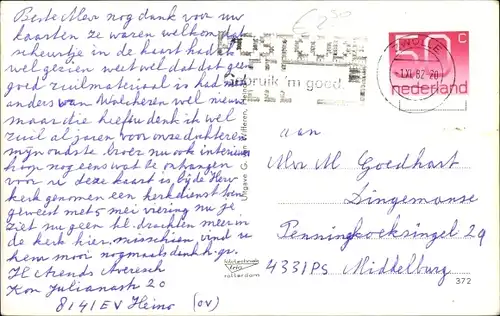 Beste Mevr nog dank voor uw
kaarten ze waren welkom dat
scheurtje in de kaart had ik
wel gezien weet wel dat dat geen
goed ruilmateriaal is had
anders van Walcheren wel nieuw
maar die heeft u denk ik wel
ruil al jaren voor onze dochter en
mijn oudste broer nu ook interieur
nog eens wat te ontvangen
voor u deze kaart is bij de Herv
kerk genomen een kerkdienst
geweest met 5 mei viering nu je
ziet nu geen kl. drachten meer in
de kerk hier, misschien vind u
hem mooi nogmaals dank h. gr.
H Arends Averesch
Kon Julianastr 20
8141 EV Heino (OV)
2 50
POSTCODE
gebruik 'm goed.
ZWOLLE
-1.XI.82.20
50 c
nederland
aan
Mevr M Goedhart
Dingemanse
Penninghoeksingel 29
4331 PS Middelburg
rotterdam
372